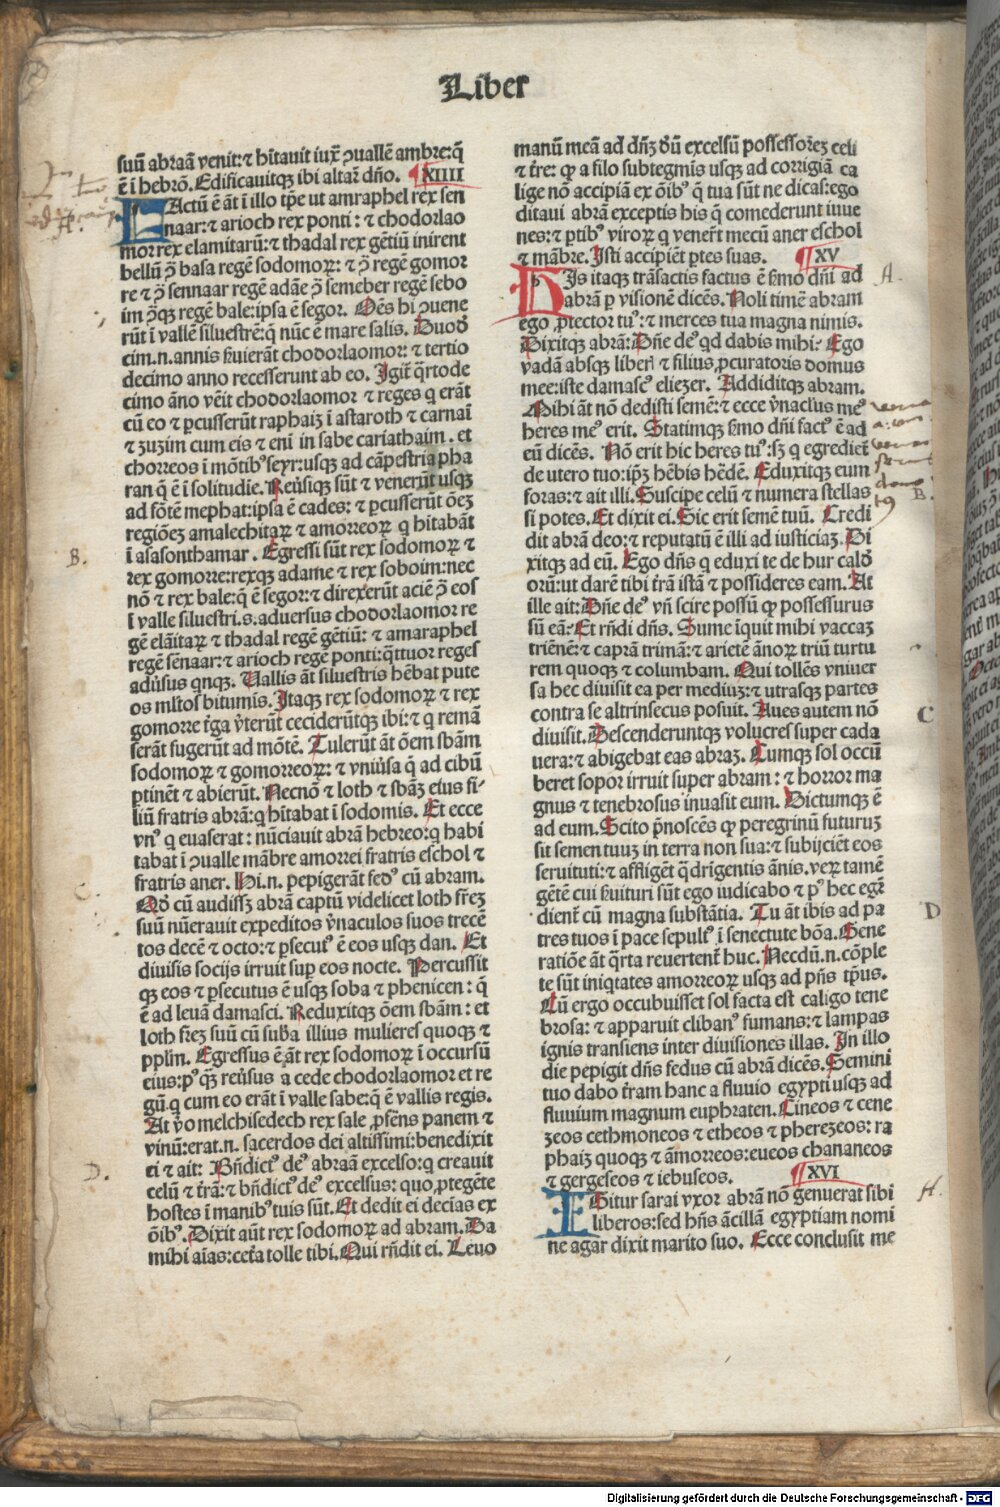 Liber
suū abraā venit: ⁊ hītauit iux̄ ꝯuallē ambre: q̄
ē ī hebrō. Edificauitqꝫ ibi altar̄ dño. XIIII
FActū ē āt ī illo tꝑe ut amraphel rex sen
naar: ⁊ arioch rex ponti: ⁊ chodorlao
mor rex elamitarū: ⁊ thadal rex gētiū inirent
bellū ꝯ̄ basa regē sodomoꝝ: ⁊ ꝯ̄ regē gomor
re ⁊ ꝯ̄ sennaar regē adāe ꝯ̄ semeber regē sebo
im ꝯ̄qꝫ regē bale: ipsa ē segor. Oēs hi ꝯuene
rūt ī vallē siluestrē: q̄ nūc ē mare salis. Duod
cim .n. annis ẜuierāt chodorlaomor: ⁊ tertio
decimo anno recesserunt ab eo. Igit̄ q̄rtode
cimo āno vēit chodorlaomor ⁊ reges q erāt
cū eo ⁊ ꝑcusserūt raphaiꝫ ī astaroth ⁊ carnaī
⁊ zuzim cum eis ⁊ enī in sabe cariathaim. et
chorreos ī mōtibꝰ seyr: usqꝫ ad cāpestria pha
ran q̄ ē ī solitudie. Reūsiqꝫ sūt ⁊ venerūt usqꝫ
ad fōtē mephat: ipsa ē cades: ⁊ ꝑcusserūt ōeꝫ
regiōeꝫ amalechitaꝝ ⁊ amorreoꝝ q hītabāt
ī asasonthamar. Egressi sūt rex sodomoꝝ ⁊
rex gomorre: rexqꝫ adame ⁊ rex soboim: nec
nō ⁊ rex bale: q̄ ē segor: ⁊ direxerūt aciē ꝯ̄ eos
ī valle siluestri .s. aduersus chodorlaomor re
gē elāitaꝝ ⁊ thadal regē gētiū: ⁊ amaraphel
regē sēnaar: ⁊ arioch regē ponti: q̄ttuor reges
adūsus qnqꝫ. Vallis āt siluestris hēbat pute
os ml̄tos bitumīs. Itaqꝫ rex sodomoꝝ ⁊ rex
gomorre t̄ga v̄terūt ceciderūtqꝫ ibi: ⁊ q remā
serāt fugerūt ad mōtē. Tulerūt āt ōem sb̄am
sodomoꝝ ⁊ gomorreoꝝ: ⁊ vniūsa q̄ ad cibū
ꝑtinēt ⁊ abierūt. Necnō ⁊ loth ⁊ sb̄aꝫ eius fi-
liū fratris abrā: q hītabat ī sodomis. Et ecce
vnꝰ q euaserat: nūciauit abrā hebreo: q habi
tabat ī ꝯualle mābre amorrei fratris eschol ⁊
fratris aner. Hi .n. pepigerāt fedꝰ cū abram.
Qd̄ cū audissꝫ abrā captū videlicet loth fr̄eꝫ
suū nūerauit expeditos v̄naculos suos trecē
tos decē ⁊ octo: ⁊ ꝑsecutꝰ ē eos usqꝫ dan. Et
diuisis socijs irruit suꝑ eos nocte. Percussit
qꝫ eos ⁊ ꝑsecutus ē usqꝫ soba ⁊ phenicen: q̄
ē ad leuā damasci. Reduxitqꝫ ōem sb̄am: et
loth fr̄eꝫ suū cū sub̄a illius mulieres quoqꝫ ⁊
ppl̄m. Egressus ē āt rex sodomoꝝ ī occursū
eius: pꝰ qꝫ reūsus a cede chodorlaomor et re
gū q cum eo erāt ī valle sabe: q̄ ē vallis regis.
At v̄o melchisedech rex sale ꝓfēns panem ⁊
vinū: erat .n. sacerdos dei altissimi: benedixit
ei ⁊ ait: Bn̄dictꝰ deꝰ abraā excelso: q creauit
celū ⁊ t̄rā: ⁊ bn̄dictꝰ deꝰ excelsus: quo ꝓtegēte
hostes ī manibꝰ tuis sūt. Et dedit ei decīas ex
ōibꝰ. Dixit aūt rex sodomoꝝ ad abram. Da
mihi aīas: cet̄a tolle tibi. Qui rn̄dit ei. Leuo
manū meā ad dn̄ꝫ dū excelsū possessoreꝫ celi
⁊ t̄re: ꝙ a filo subtegmīs usqꝫ ad corrigiā ca
lige nō accipiā ex ōibꝰ q̄ tua sūt ne dicas: ego
ditaui abrā exceptis his q̄ comederunt iuue
nes: ⁊ ꝑtibꝰ viroꝝ q vener̄t mecū aner eschol
⁊ mābre. Isti accipiēt ꝑtes suas. XV
HIs itaqꝫ trāsactis factus ē ẜmo dn̄i ad
abrā ꝑ visionē dicēs. Noli timē abram
ego ꝓtector tuꝰ: ⁊ merces tua magna nimis.
Dixitqꝫ abrā: Dn̄e deꝰ qd dabis mihi? Ego
vadā absqꝫ liberī ⁊ filius ꝓcuratoris domus
mee: iste damascꝰ eliezer. Addiditqꝫ abram.
Mihi āt nō dedisti semē: ⁊ ecce v̄naclus meꝰ
heres meꝰ erit. Statimqꝫ ẜmo dn̄i factꝰ ē ad
eū dicēs. Nō erit hic heres tuꝰ: sꝫ q egrediet̄
de utero tuo: ip̄ꝫ hēbis hēdē. Eduxitqꝫ eum
foras: ⁊ ait illi. Suscipe celū ⁊ numera stellas
si potes. Et dixit ei. Sic erit semē tuū. Credi
dit abrā deo: ⁊ reputatū ē illi ad iusticiaꝫ. Di
xitqꝫ ad eū. Ego dn̄s q eduxi te de hur cald̄
orū: ut darē tibi t̄rā istā ⁊ possideres eam. At
ille ait: Dn̄e deꝰ vn̄ scire possū ꝙ possessurus
sū eā? Et rn̄di dn̄s. Sume īquit mihi vaccaꝫ
triēnē: ⁊ caprā trimā: ⁊ arietē ānoꝝ triū turtu
rem quoqꝫ ⁊ columbam. Qui tollēs vniuer
sa hec diuisit ea per mediuꝫ: ⁊ utrasqꝫ partes
contra se altrinsecus posuit. Aues autem nō
diuisit. Descenderuntqꝫ volucres super cada
uera: ⁊ abigebat eas abraꝫ. Cumqꝫ sol occū
beret sopor irruit super abram: ⁊ horror ma
gnus ⁊ tenebrosus inuasit eum. Dictumqꝫ ē
ad eum. Scito p̄noscēs ꝙ peregrinū futuruꝫ
sit semen tuuꝫ in terra non sua: ⁊ subijciēt eos
seruituti: ⁊ affligēt q̄drīgentis ānis. veꝝ tamē
gētē cui ẜuituri sūt ego iudicabo ⁊ pꝰ hec egr̄
dient̄ cū magna substātia. Tu āt ibis ad pa
tres tuos ī pace sepultꝰ ī senectute bōa. Gene
ratiōe āt q̄rta reuertent̄ huc. Necdū .n. cōple
te sūt iniqtates amorreoꝝ usqꝫ ad p̄ns tꝑus.
Cū ergo occubuisset sol facta est caligo tene
brosa: ⁊ apparuit clibanꝰ fumans: ⁊ lampas
ignis transiens inter diuisiones illas. In illo
die pepigit dn̄s fedus cū abrā dicēs. Semini
tuo dabo t̄ram hanc a fluuio egypti usqꝫ ad
fluuium magnum euphraten. Cineos ⁊ cene
zeos cethmoneos ⁊ etheos ⁊ pherezeos: ra
phaiꝫ quoqꝫ ⁊ āmorreos: eueos chananeos
⁊ gergeseos ⁊ iebuseos. XVI
IGitur sarai vxor abrā nō genuerat sibi
liberos: sed hn̄s ācillā egyptiam nomi
ne agar dixit marito suo. Ecce conclusit me
A.
B.
C.
D.
A.
B.
C
D
A.
Digitalisierung gefördert durch die Deutsche Forschungsgemeinschaft - DFG